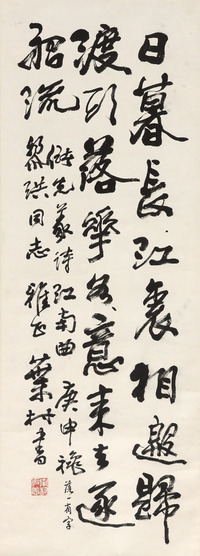 日暮長江裏相邀歸
渡頭落華如意來去逐
船流 儲光羲詩江南曲 庚申穐 落有字
黎洪同志雅正 葉村書